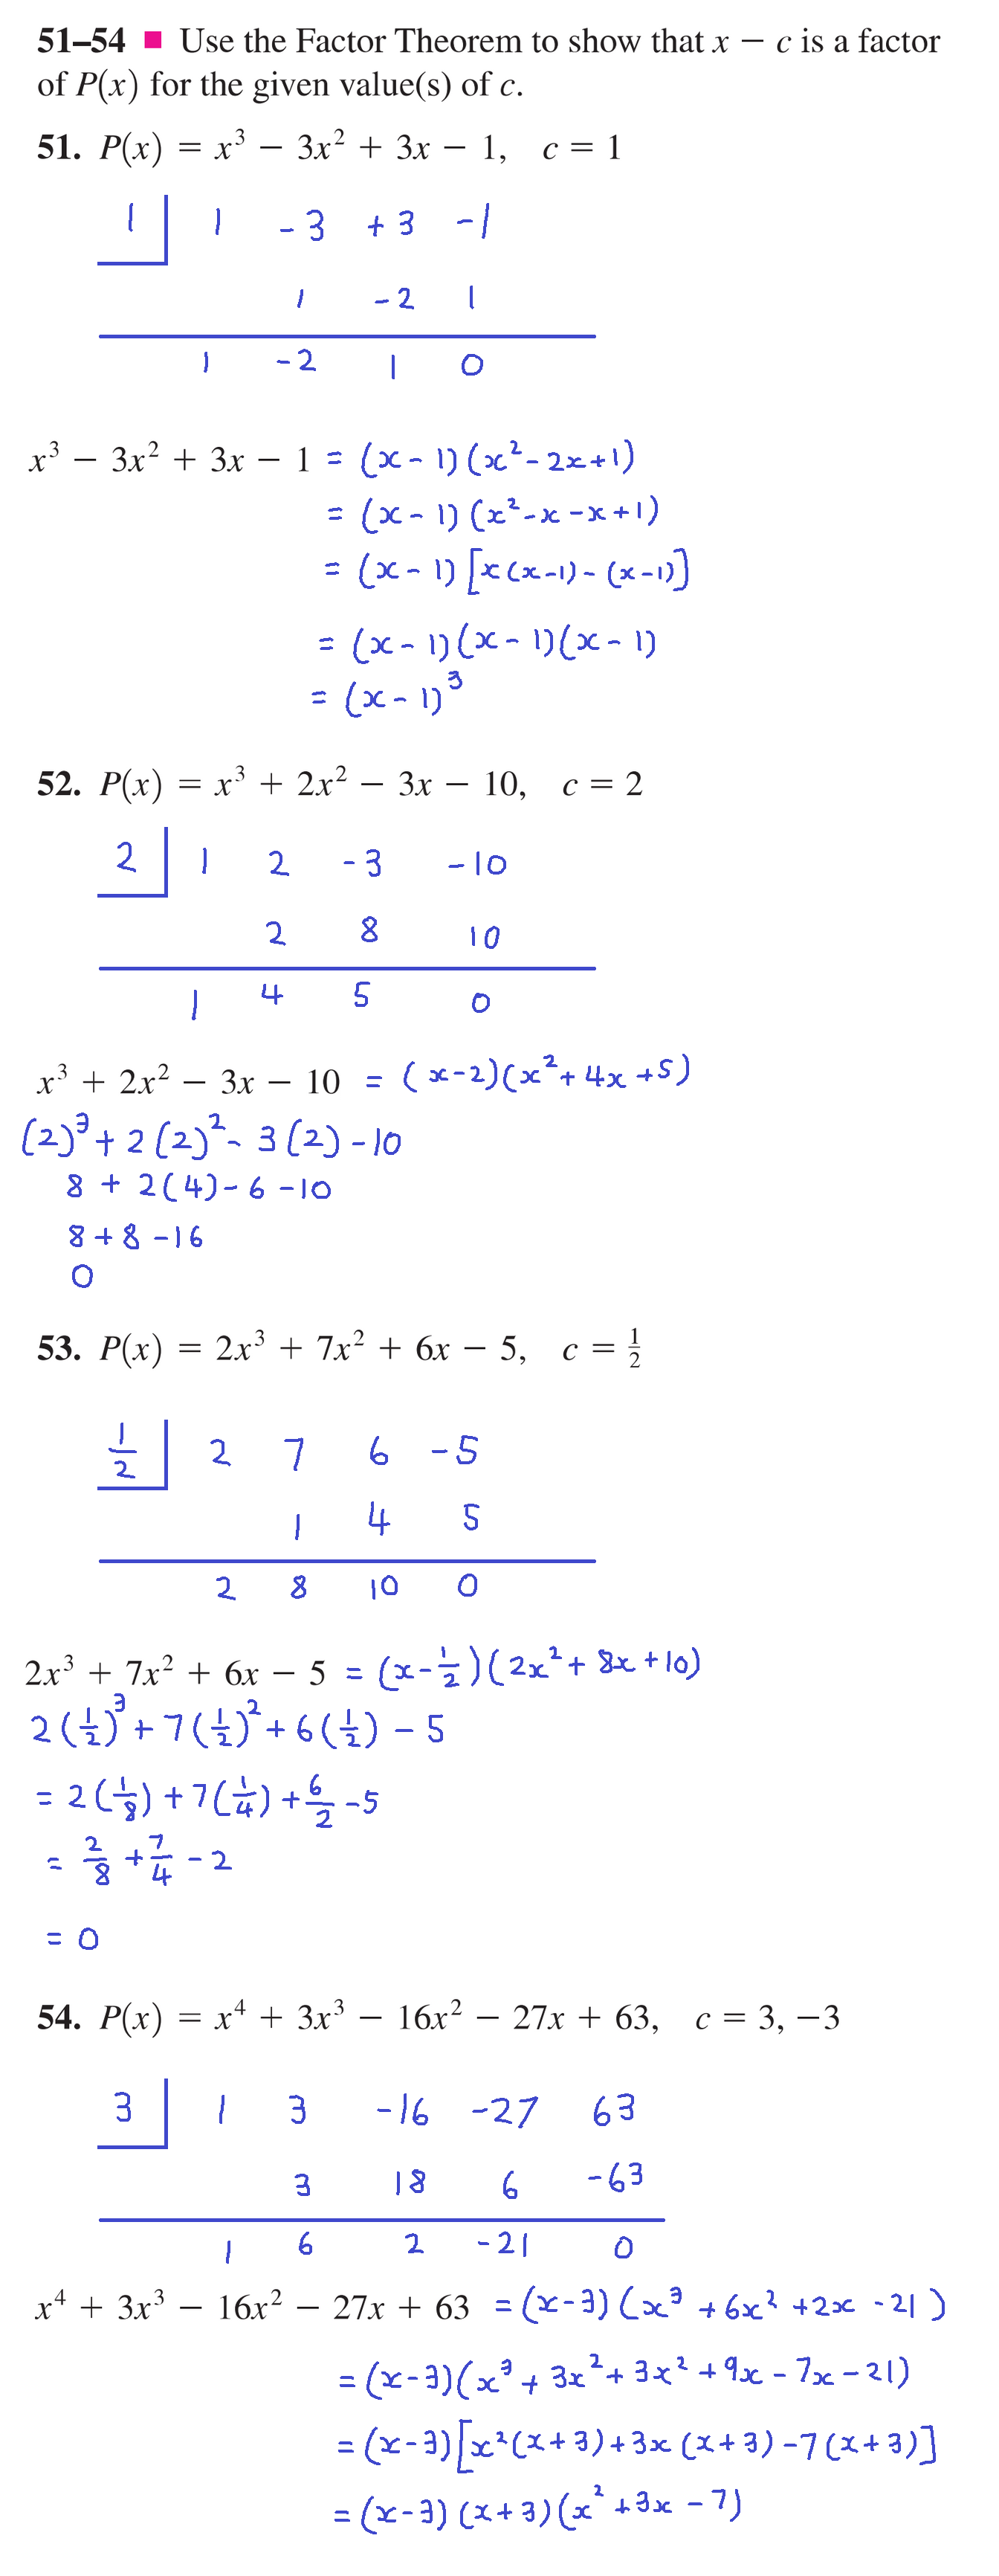 51–54 ■ Use the Factor Theorem to show that x − c is a factor
of P(x) for the given value(s) of c.
51. P(x) = x³ − 3x² + 3x − 1, c = 1
1 | 1 -3 +3 -1
1 -2 1
1 -2 1 0
x³ − 3x² + 3x − 1 = (x - 1)(x² - 2x + 1)
= (x - 1)(x² - x - x + 1)
= (x - 1)[x(x - 1) - (x - 1)]
= (x - 1)(x - 1)(x - 1)
= (x - 1)³
52. P(x) = x³ + 2x² − 3x − 10, c = 2
2 | 1 2 -3 -10
2 8 10
1 4 5 0
x³ + 2x² − 3x − 10 = (x - 2)(x² + 4x + 5)
(2)³ + 2(2)² - 3(2) - 10
8 + 2(4) - 6 - 10
8 + 8 - 16
0
53. P(x) = 2x³ + 7x² + 6x − 5, c = 1/2
1/2 | 2 7 6 -5
1 4 5
2 8 10 0
2x³ + 7x² + 6x − 5 = (x - 1/2)(2x² + 8x + 10)
2(1/2)³ + 7(1/2)² + 6(1/2) - 5
= 2(1/8) + 7(1/4) + 6/2 - 5
= 2/8 + 7/4 - 2
= 0
54. P(x) = x⁴ + 3x³ − 16x² − 27x + 63, c = 3, −3
3 | 1 3 -16 -27 63
3 18 6 -63
1 6 2 -21 0
x⁴ + 3x³ − 16x² − 27x + 63 = (x - 3)(x³ + 6x² + 2x - 21)
= (x - 3)(x³ + 3x² + 3x² + 9x - 7x - 21)
= (x - 3)[x²(x + 3) + 3x(x + 3) - 7(x + 3)]
= (x - 3)(x + 3)(x² + 3x - 7)